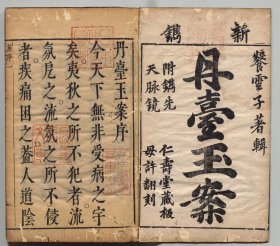 新鐫
繫雲子著輯
丹臺玉案
附鐫先天脉鏡
仁壽堂藏板
毋許翻刻
丹臺玉案序
今天下無非受病之宇
矣夷秋之所不犯者流
氛児之流氛之所不侵
者疾痛困之蓋人道陰